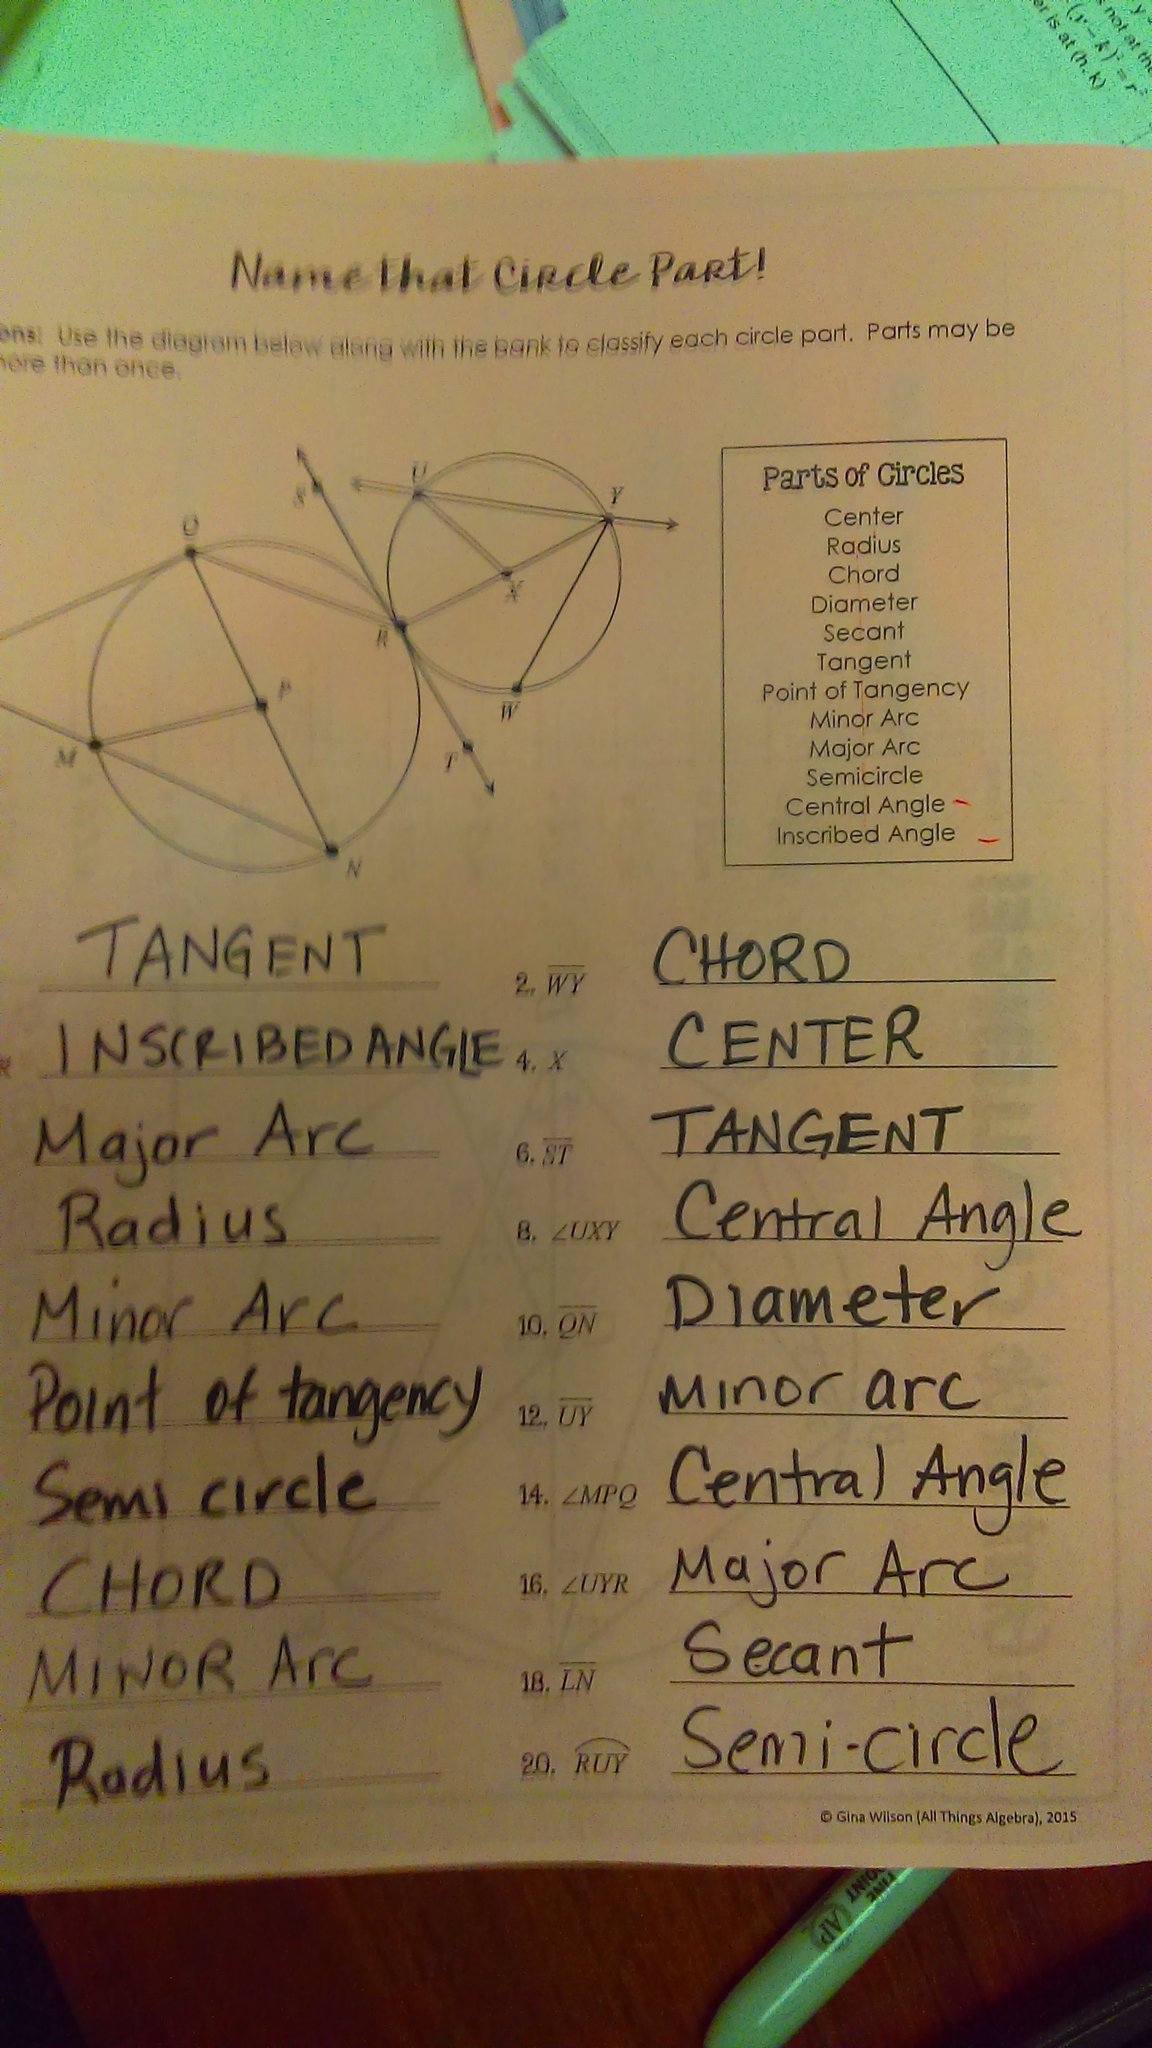 y
s not at the
(y - k)² = r²
er is at (h, k)
Name that Circle Part!
ons: Use the diagram below along with the bank to classify each circle part. Parts may be
more than once.
U
S
Y
Q
X
R
P
W
M
T
N
Parts of Circles
Center
Radius
Chord
Diameter
Secant
Tangent
Point of Tangency
Minor Arc
Major Arc
Semicircle
Central Angle
Inscribed Angle
TANGENT 2. WY CHORD
R INSCRIBED ANGLE 4. X CENTER
Major Arc 6. ST TANGENT
Radius 8. ∠UXY Central Angle
Minor Arc 10. QN Diameter
Point of tangency 12. UY Minor arc
Semi circle 14. ∠MPQ Central Angle
CHORD 16. ∠UYR Major Arc
MINOR Arc 18. LN Secant
Radius 20. RUY Semi-circle
© Gina Wilson (All Things Algebra), 2015
FINE
POINT
AP